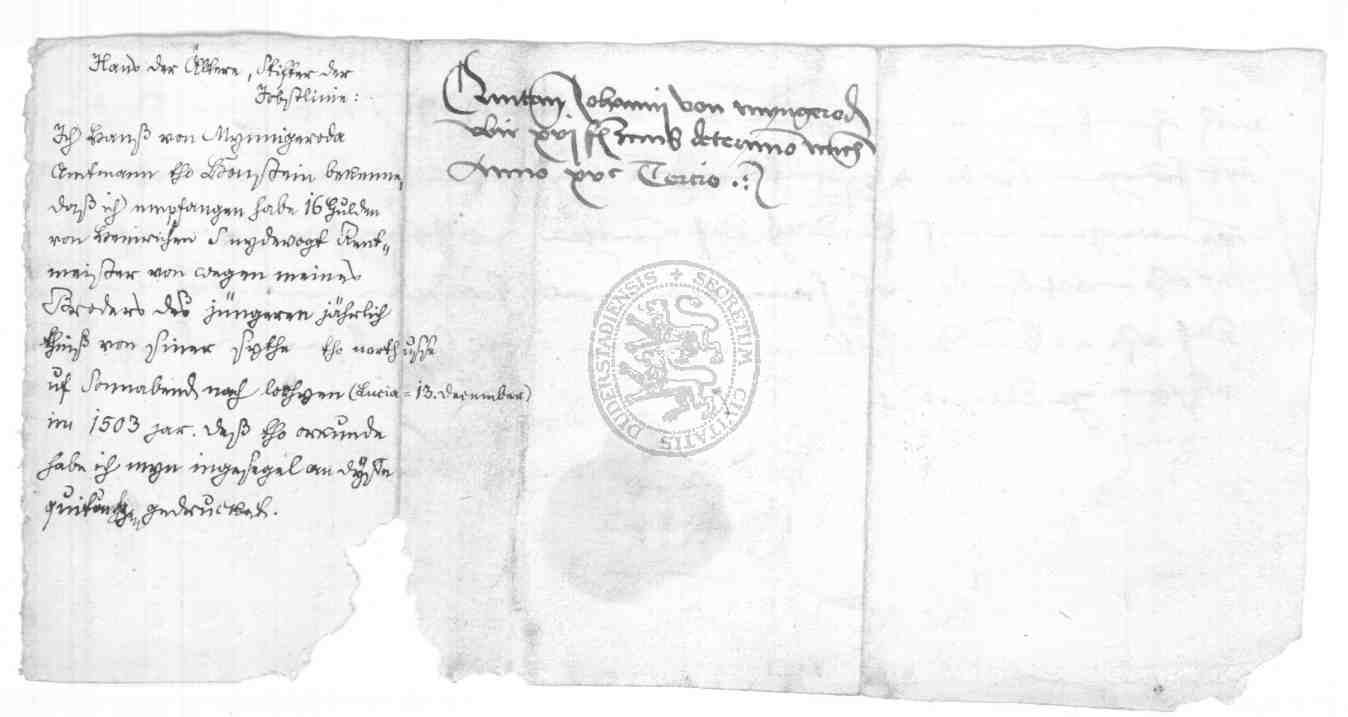 Hans der Ältere, Stifter der
Jobstlinie:
Ich Hanß von Mynnigeroda
Amtmann tho Honstein bekenne,
daß ich empfangen habe 16 Gulden
von Heinrichen Snydevogt Rent-
meister von wegen meines
Broders des jüngeren jährlich
thinß von siner sythe tho northusse
uf Sonnabend nach (Lucia = 13. December)
im 1503 jar. Deß tho orkunde
habe ich myn ingesegel an dysse
quitantz gedrucket.
Johannis von myngerod
xvj
Anno xvc Tercio
SECRETUM CIVITATIS DUDERSTADIENSIS